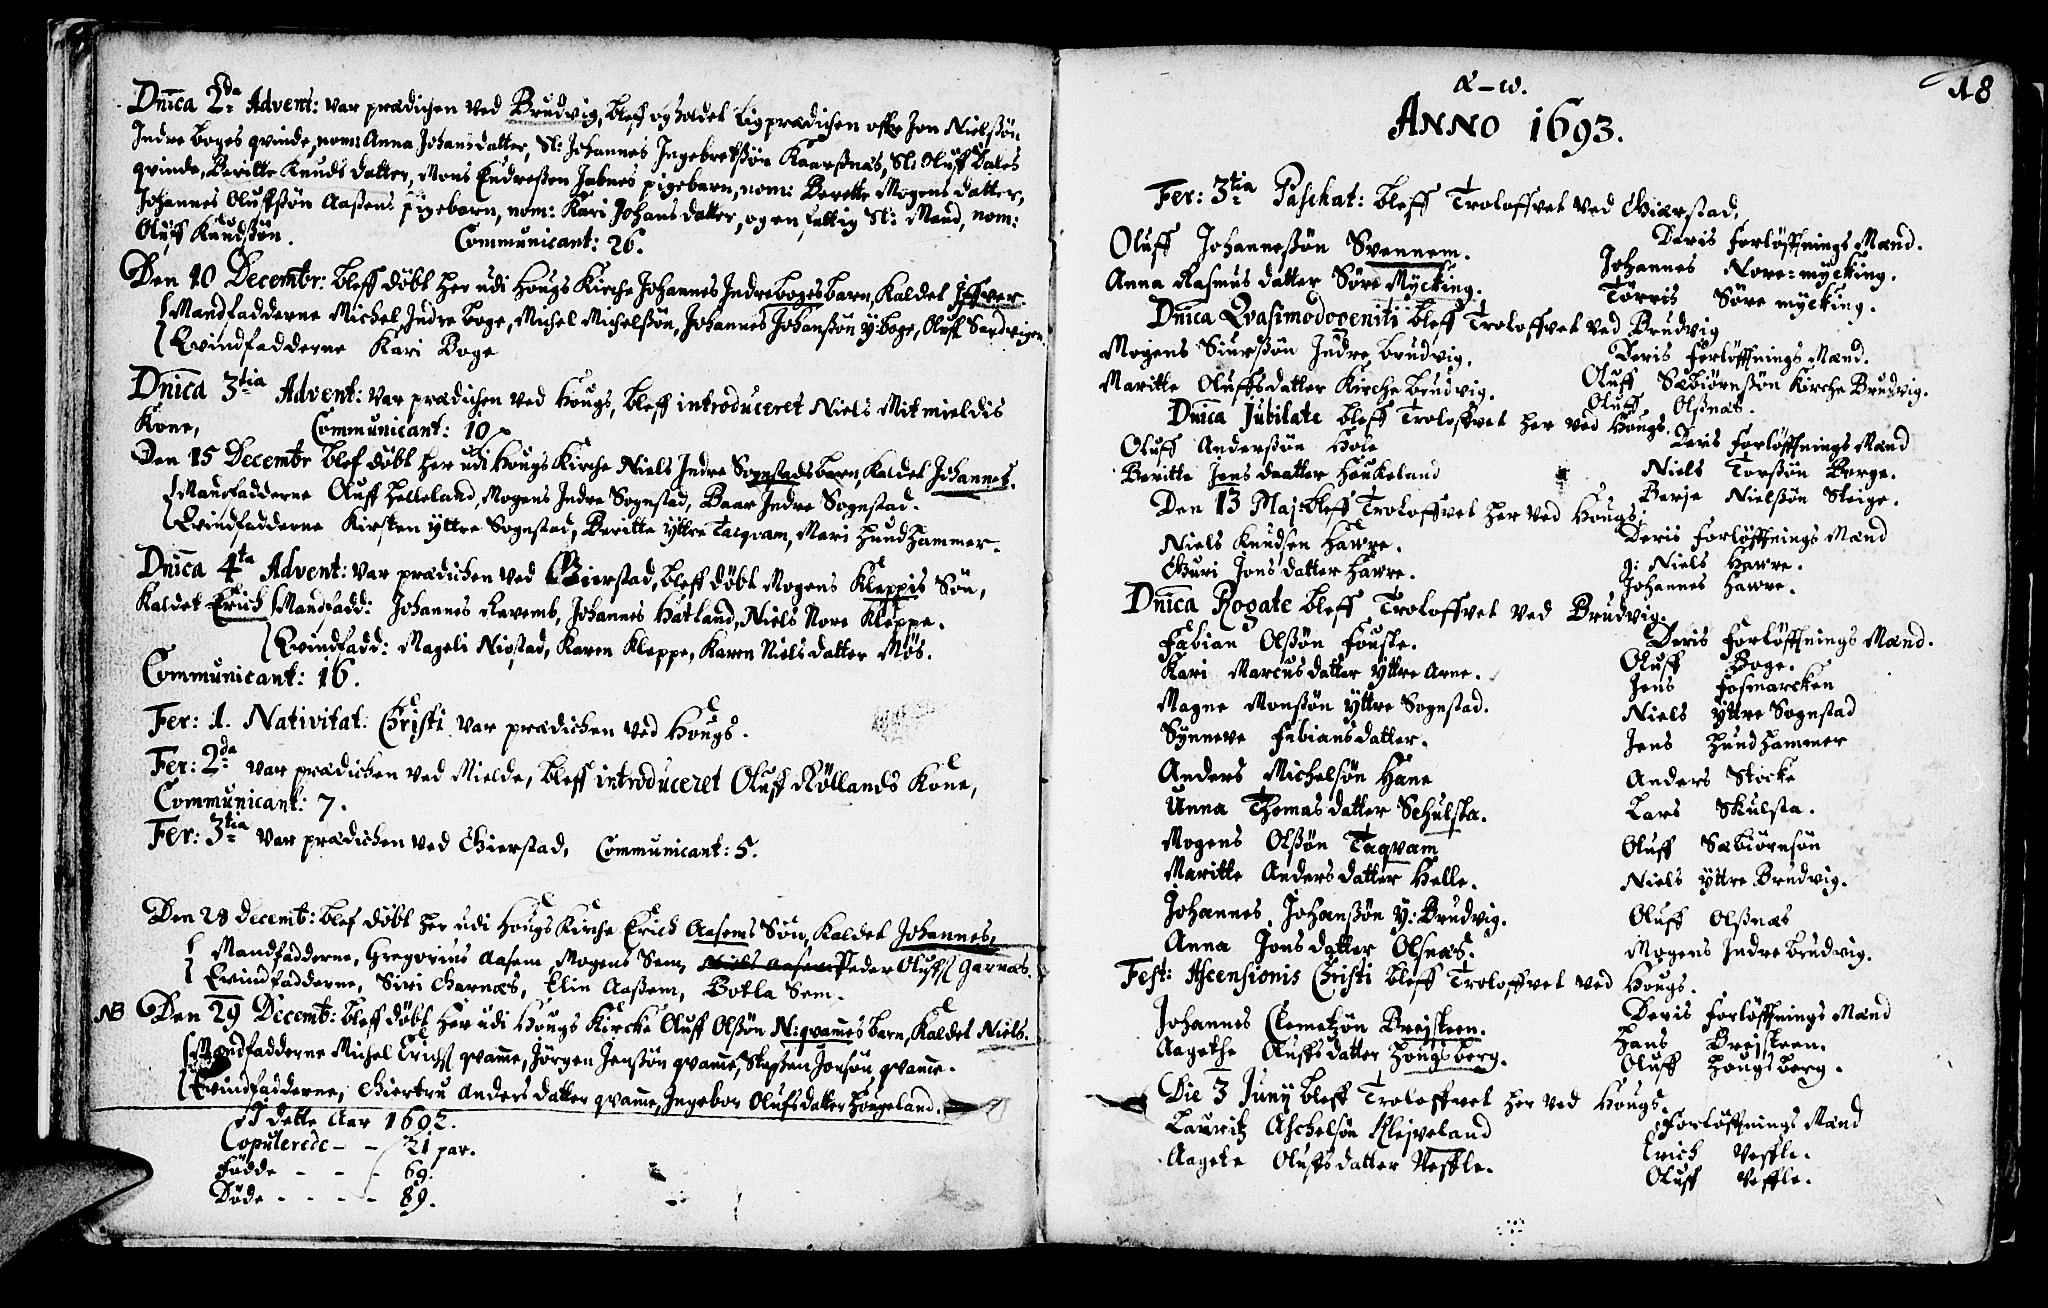 Dnica 2da Advent: var prædichen ved Brudvig, bleff og holdet ligprædichen offr Jon Nielssøn
Indre boges qvinde, nom: Anna Johansdatter, Sl: Johannes Ingebretssøn Kaarssnæs, Sl: Oluff Dales
qvinde, Beritte Knuds datter, Mons Endressen Jabnes pigebarn, nom: Berette Mogens datter,
Johannes Oluffssøn Aassens pigebarn, nom: Kari Johans datter, og en fattig Sl: Mand, nom:
Oluff Knudssøn. Communicant: 26.
Den 10 Decembr: bleff døbt her udi Hougs Kirche Johannes Indrebogesbarn, kaldet Iffver.
Mandfadderne Michel Indre boge, Michel Michelssøn, Johannes Johanssøn y: boge, Oluff Sandvigen.
Qvindfadderne Kari Boge
Dnica 3tia Advent: var prædichen ved Hougs, bleff introduceret Niels Mitmieldis
Kone, Communicant: 10
Den 15 Decembr blef døbt her udi Hougs Kirche Niels Indre Sognstads barn, kaldet Johannes.
Mandfadderne Oluff Helleland, Mogens Indre Sognstad, Baar Indre Sognstad.
Qvindfadderne Kirsten yttre Sognstad, Beritte yttre Tacqvam, Mari Hundhammer.
Dnica 4ta Advent: var prædichen ved Gierstad, bleff døbt Mogens Kleppis Søn,
kaldet Erich Mandfadd: Johannes Ravemb, Johannes Hatland, Niels Nore Kleppe.
Qvindfadd: Mageli Niostad, Karen Kleppe, Karen Nielsdatter Møs.
Communicant: 16.
Fer: 1. Nativitat: Christi var prædichen ved Hougs.
Fer: 2da var prædichen ved Mielde, bleff introduceret Oluff Røllands Kone,
Communicant: 7.
Fer: 3tia var prædichen ved Gierstad, Communicant: 5.
Den 28 Decemb: blef døbt her udi Hougs Kirche Erich Aasems Søn, kaldet Johannes,
Mandfadderne, Gregorius Aasem Mogens Sem, Niels Aasem Peder Oluffs Garnæs.
Qvindfadderne, Siri Garnæs, Elin Aassem, Botla Sem.
NB Den 29 Decemb: bleff døbt her udi Hougs Kircke Oluff Olssøn N: qvames barn, kaldet Niels.
Mandfadderne Michel Erichs qvame, Jørgen Jenssøn qvame, Steffen Jonsøn qvame.
Qvindfadderne, Giertru Anders datter qvame, Ingebor Olufsdatter Hougeland.
I dette Aar 1692.
Copulerede - - 21 par.
Fødde - - - 69.
Døde - - - - 89.
18
α - ω.
ANNO 1693.
Fer: 3tia Paschat: bleff Troloffvet ved Giærstad.
Oluff Johannessøn Svennem. Deris forlöffnings Mænd.
Anna Rasmus datter Søre Mycking. Johannes Nore-mycking.
Törris Søre mycking.
Dnica Qvasimodogeniti bleff Troloffvet ved Brudvig
Mogens Siurssøn Indre brudvig, Deris forlöffnings Mænd.
Maritte Oluffsdatter Kirche brudvig. Oluff Sæbiørnssøn Kirche Brudvig.
Oluff Olssnæs.
Dnica Jubilate bleff Troloffvet her ved Hougs.
Oluff Anderssøn Hole Deris forlöffnings Mænd
Beritte Jens daatter Houkeland Niels Torssøn Berge.
Berje Nielssøn Steige.
Den 13 Maj bleff Troloffvet her ved Hougs.
Niels Knudsen Hawre. Deris forlöffnings Mænd
Guri Jons datter Hawre. g: Niels Hawre.
Johannes Hawre.
Dnica Rogate bleff Troloffvet ved Brudvig.
Fabian Olssøn Fouske. Deris forlöffnings Mænd.
Kari Marcus datter yttre Arne. Oluff Boge.
Jens Fosmarcken
Magne Monssøn yttre Sognstad. Niels yttre Sognstad
Synneve Fabians datter. Jens Hundhammer
Anders Michelsøn Hane Anders Stocke
Unna Thomas datter Schulsta. Lars Skulsta.
Mogens Olssøn Taqvam Oluff Sæbiørnsøn
Maritte Anders datter Helle. Niels yttre Brudvig.
Johannes Johanssøn y: Brudvig. Oluff Olssnæs
Anna Jonsdatter Olsnæs. Mogens Indre brudvig.
Fest: Ascensionis Christi bleff Troloffvet ved Hougs.
Johannes Clemetzøn Brejsteen. Deris forlöffnings Mænd
Aagethe Oluffsdatter Hougsberg. Hans Brejsteen.
Oluff Hougsberg.
Die 3 Juny bleff Troloffvet her ved Hougs.
Lauritz Aschelsøn Klejveland Forlöffnings Mænd
Aagete Oluffsdatter Veffle. Erich Veffle.
Oluff Veffle.